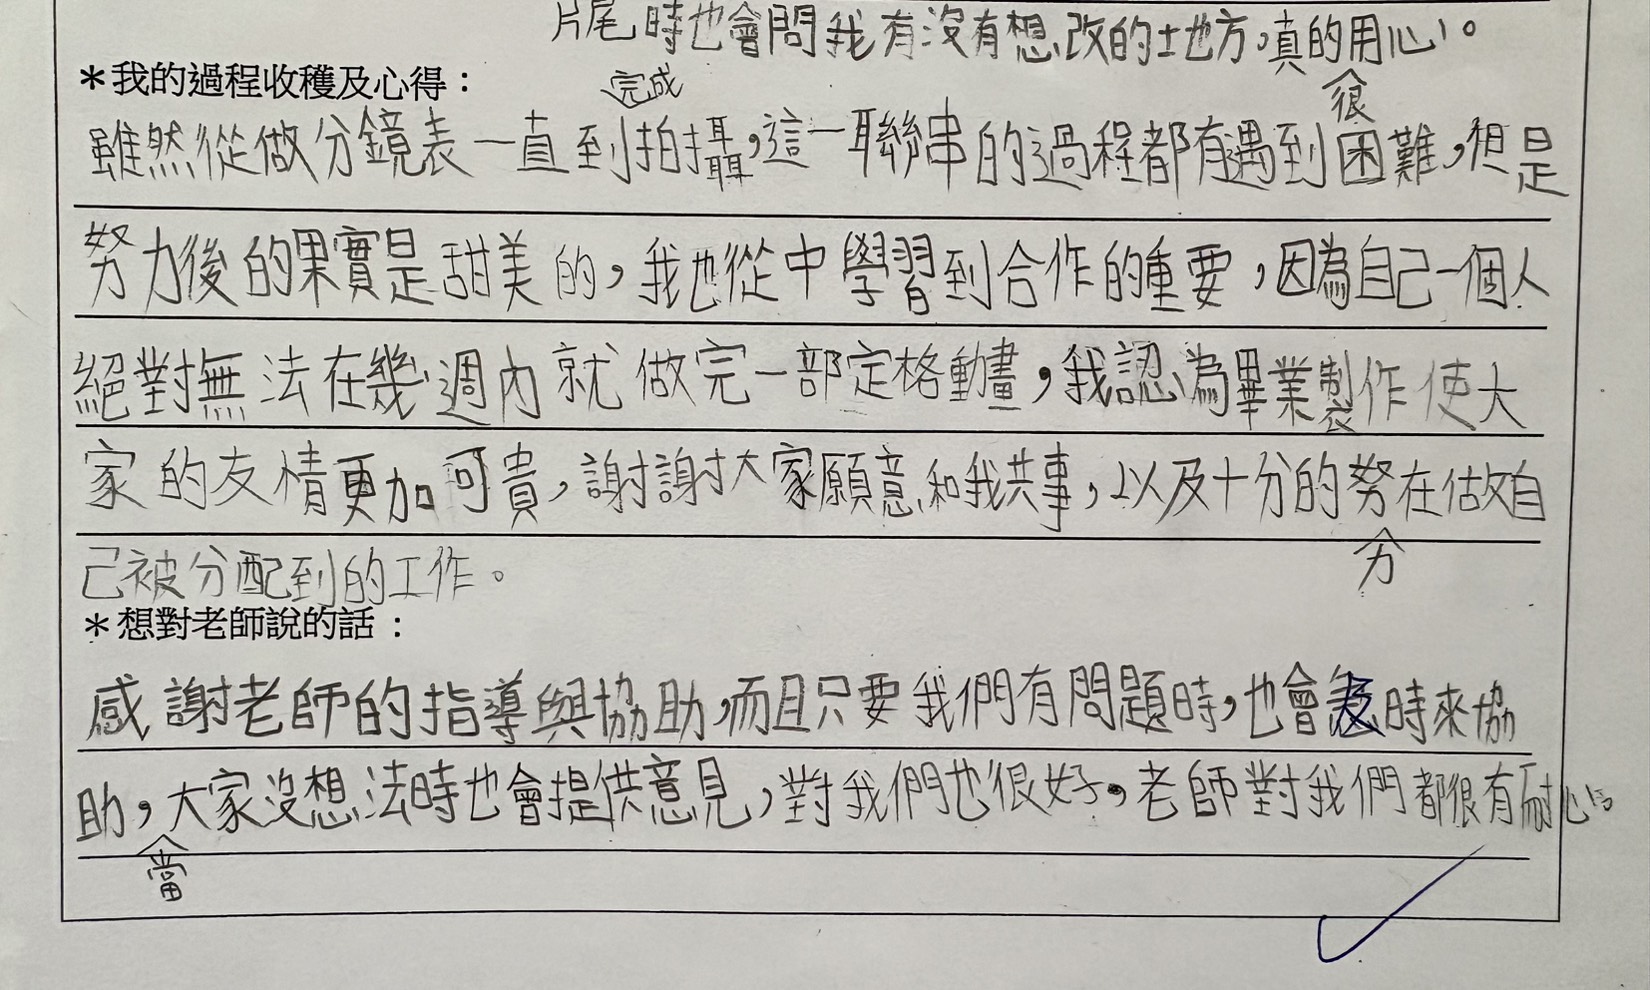 片尾時也會問我有沒有想改的土地方,真的很用心。
*我的過程收穫及心得:
雖然從做分鏡表一直到完成拍攝,這一聯串的過程都有遇到困難,但是
努力後的果實是甜美的,我也從中學習到合作的重要,因為自己一個人
絕對無法在幾週內就做完一部定格動畫,我認為畢業製作使大
家的友情更加可貴,謝謝大家願意和我共事,以及十分的努力在做自
己被分配到的工作。
*想對老師說的話:
感謝老師的指導與協助,而且只要我們有問題時,也會及時來協
助,當大家沒想法時也會提供意見,對我們也很好,老師對我們都很有耐心。